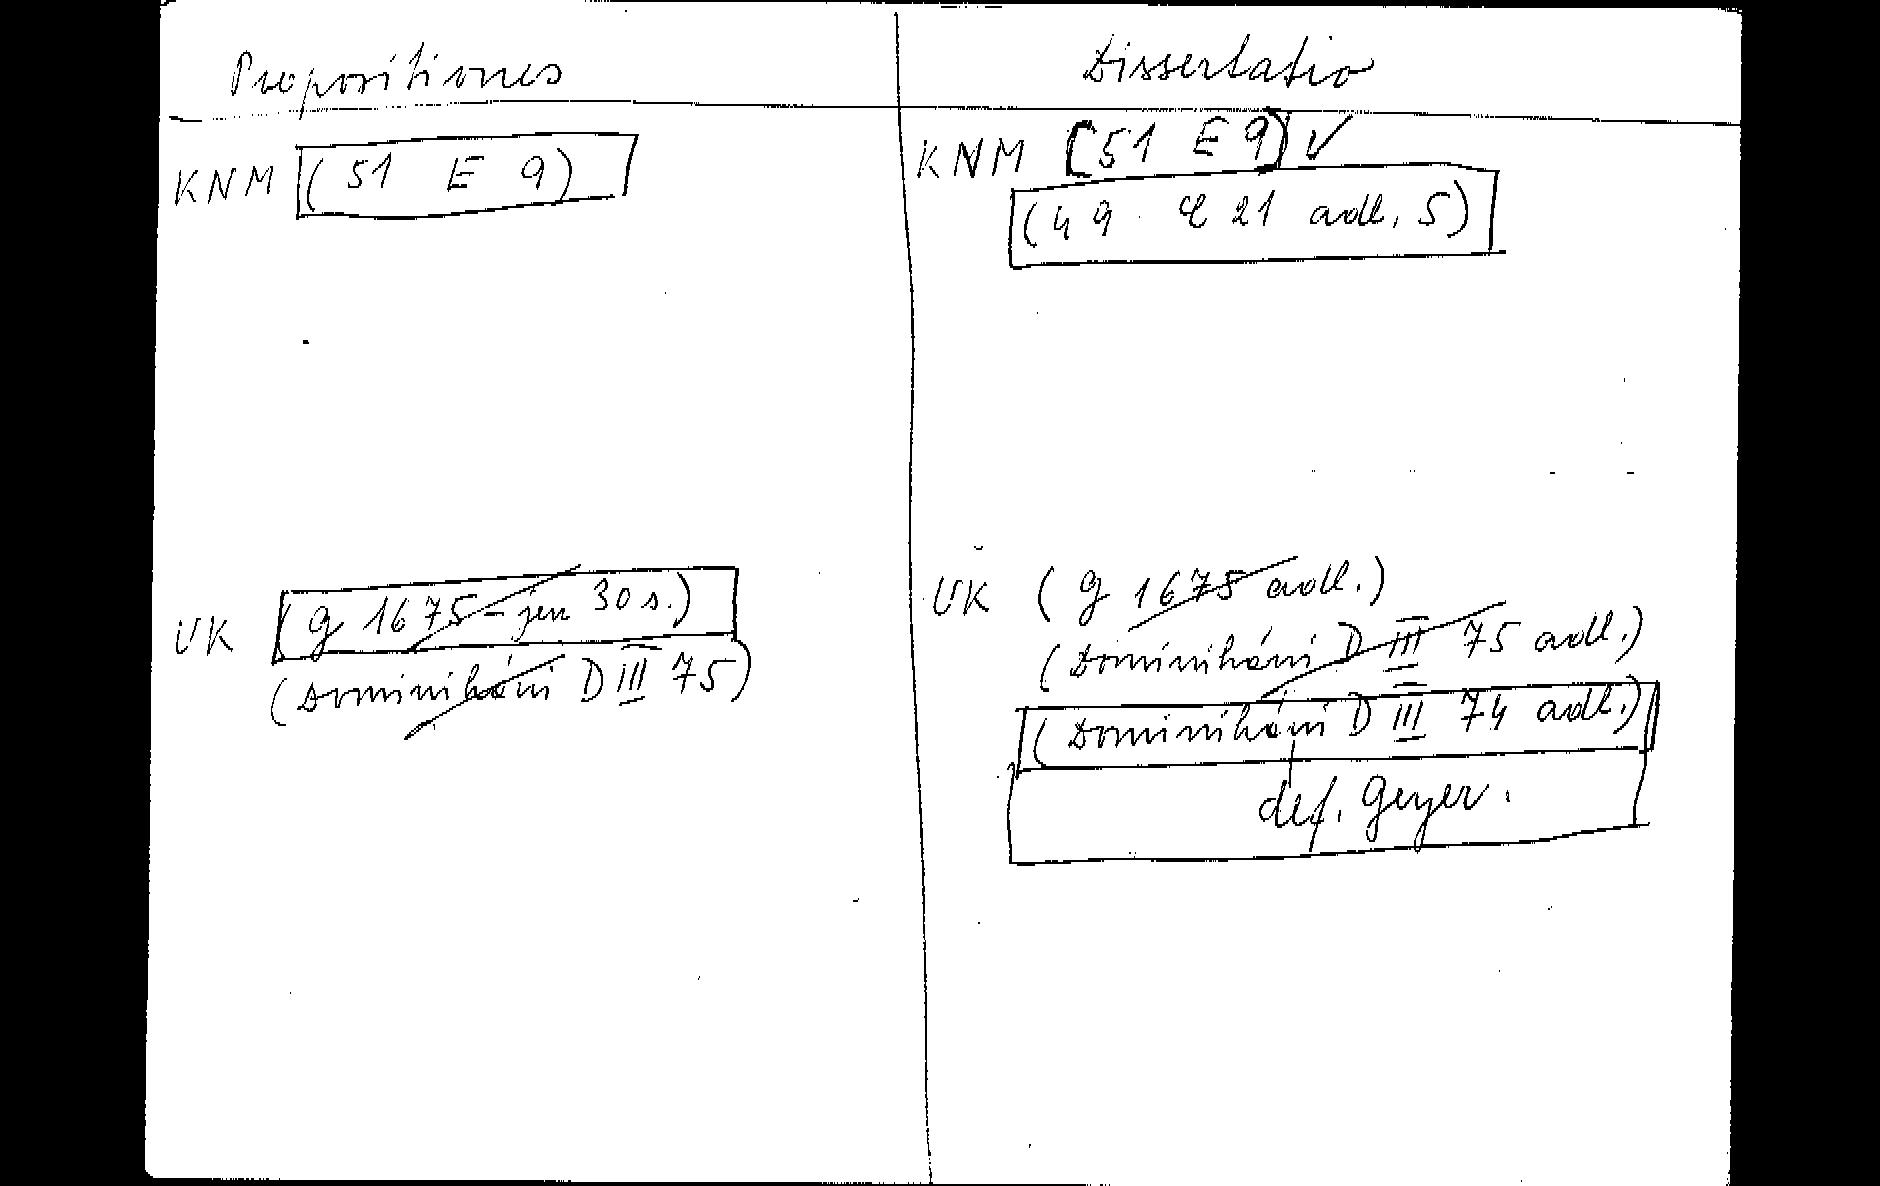 Propositiones
KNM (51 E 9)
UK (g 1675 - jen 30 s.)
(Dominikáni D III 75)
Dissertatio
KNM (51 E 9) ✓
(49 E 21 adl. 5)
UK (g 1675 adl.)
(Dominikáni D III 75 adl.)
(Dominikáni D III 74 adl.)
def. Geyer.